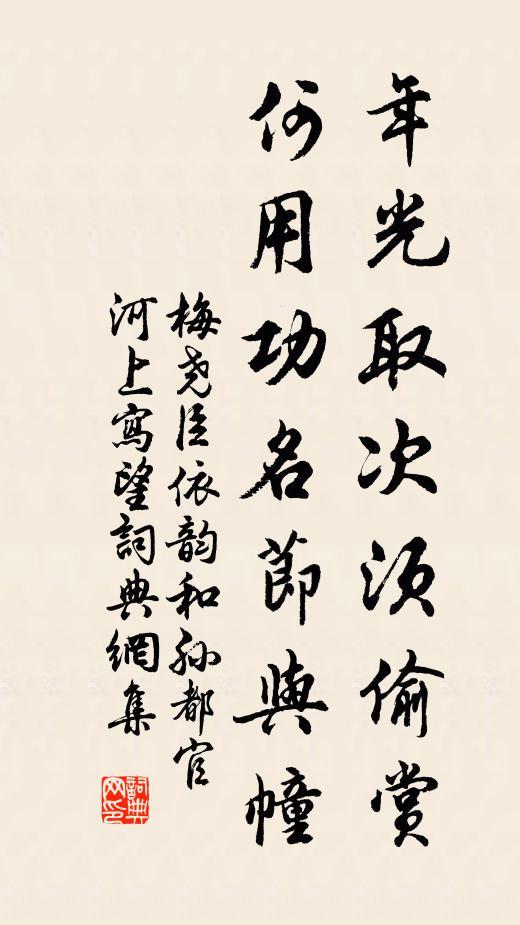 年光取次須偷賞
何用功名節與幢
梅堯臣依韵和孫都官
河上寫望詞典網集
詞典
网印